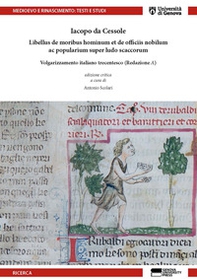 MEDIOEVO E RINASCIMENTO: TESTI E STUDI
Università
di Genova
Iacopo da Cessole
Libellus de moribus hominum et de officiis nobilium
ac popularium super ludo scaccorum
Volgarizzamento italiano trecentesco (Redazione A)
edizione critica
a cura di
Antonio Scolari
GENOVA
UNIVERSITY
PRESS
RICERCA